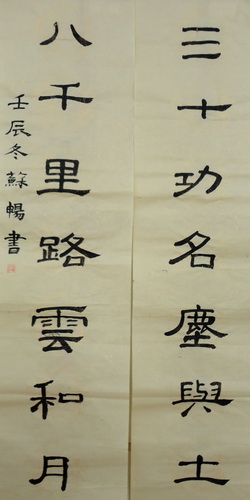 三十功名塵與土
八千里路雲和月
壬辰冬蘇暢書